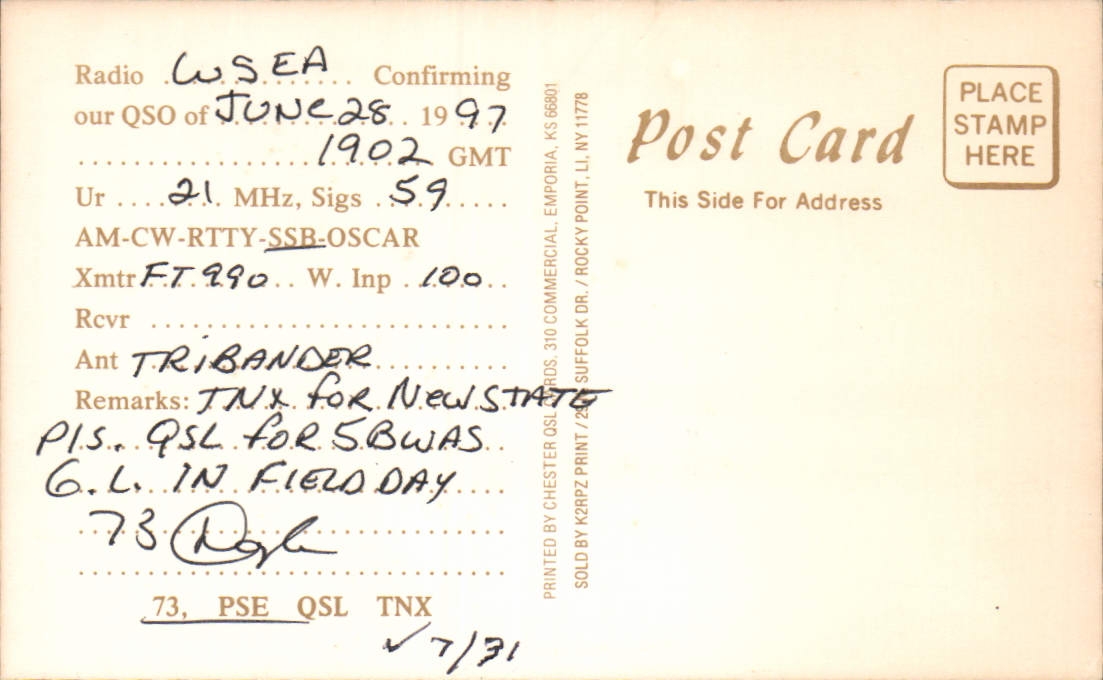 Radio . W5EA . . . Confirming
our QSO of JUNE 28 . . 19 97
1902 GMT
Ur . . . . 21 . . MHz, Sigs . 59 . . . . .
AM-CW-RTTY-SSB-OSCAR
Xmtr FT 990 . . W. Inp . 100 . .
Rcvr
Ant TRIBANDER
Remarks: TNX for New STATE
PlS. QSL for 5BWAS
G.L. IN FIELD DAY
73
73, PSE QSL TNX
✓ 7/31
PRINTED BY CHESTER QSL CARDS, 310 COMMERCIAL, EMPORIA, KS 66801
SOLD BY K2RPZ PRINT / SUFFOLK DR. / ROCKY POINT, LI, NY 11778
Post Card
This Side For Address
PLACE
STAMP
HERE